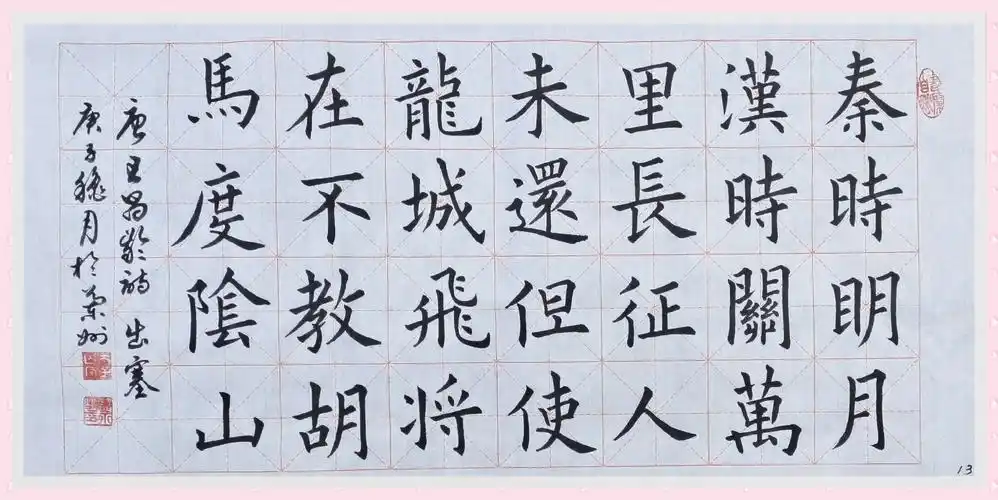 秦時明月
漢時關萬
里長征人
未還但使
龍城飛将
在不教胡
馬度陰山
唐王昌齡詩 出塞
庚子穐月於蘭州
13